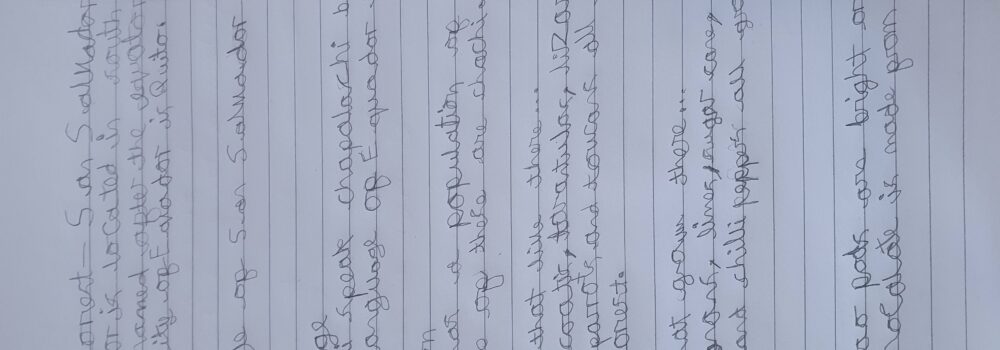 oriect - San Salvador
or is located in south
named after the equator
ity of Equador is Quito.
ge of San Salvador
ge
i speak chapalachi b
anguage of Equador
n
has a population of
e of these are chachi
that live there...
coatis, tarantulas, liZar
parrots, and toucans all
orest.
at grow there...
limes, sugar cane,
and chilli peppers all gro
ao pods are bright or
ocolate is made from